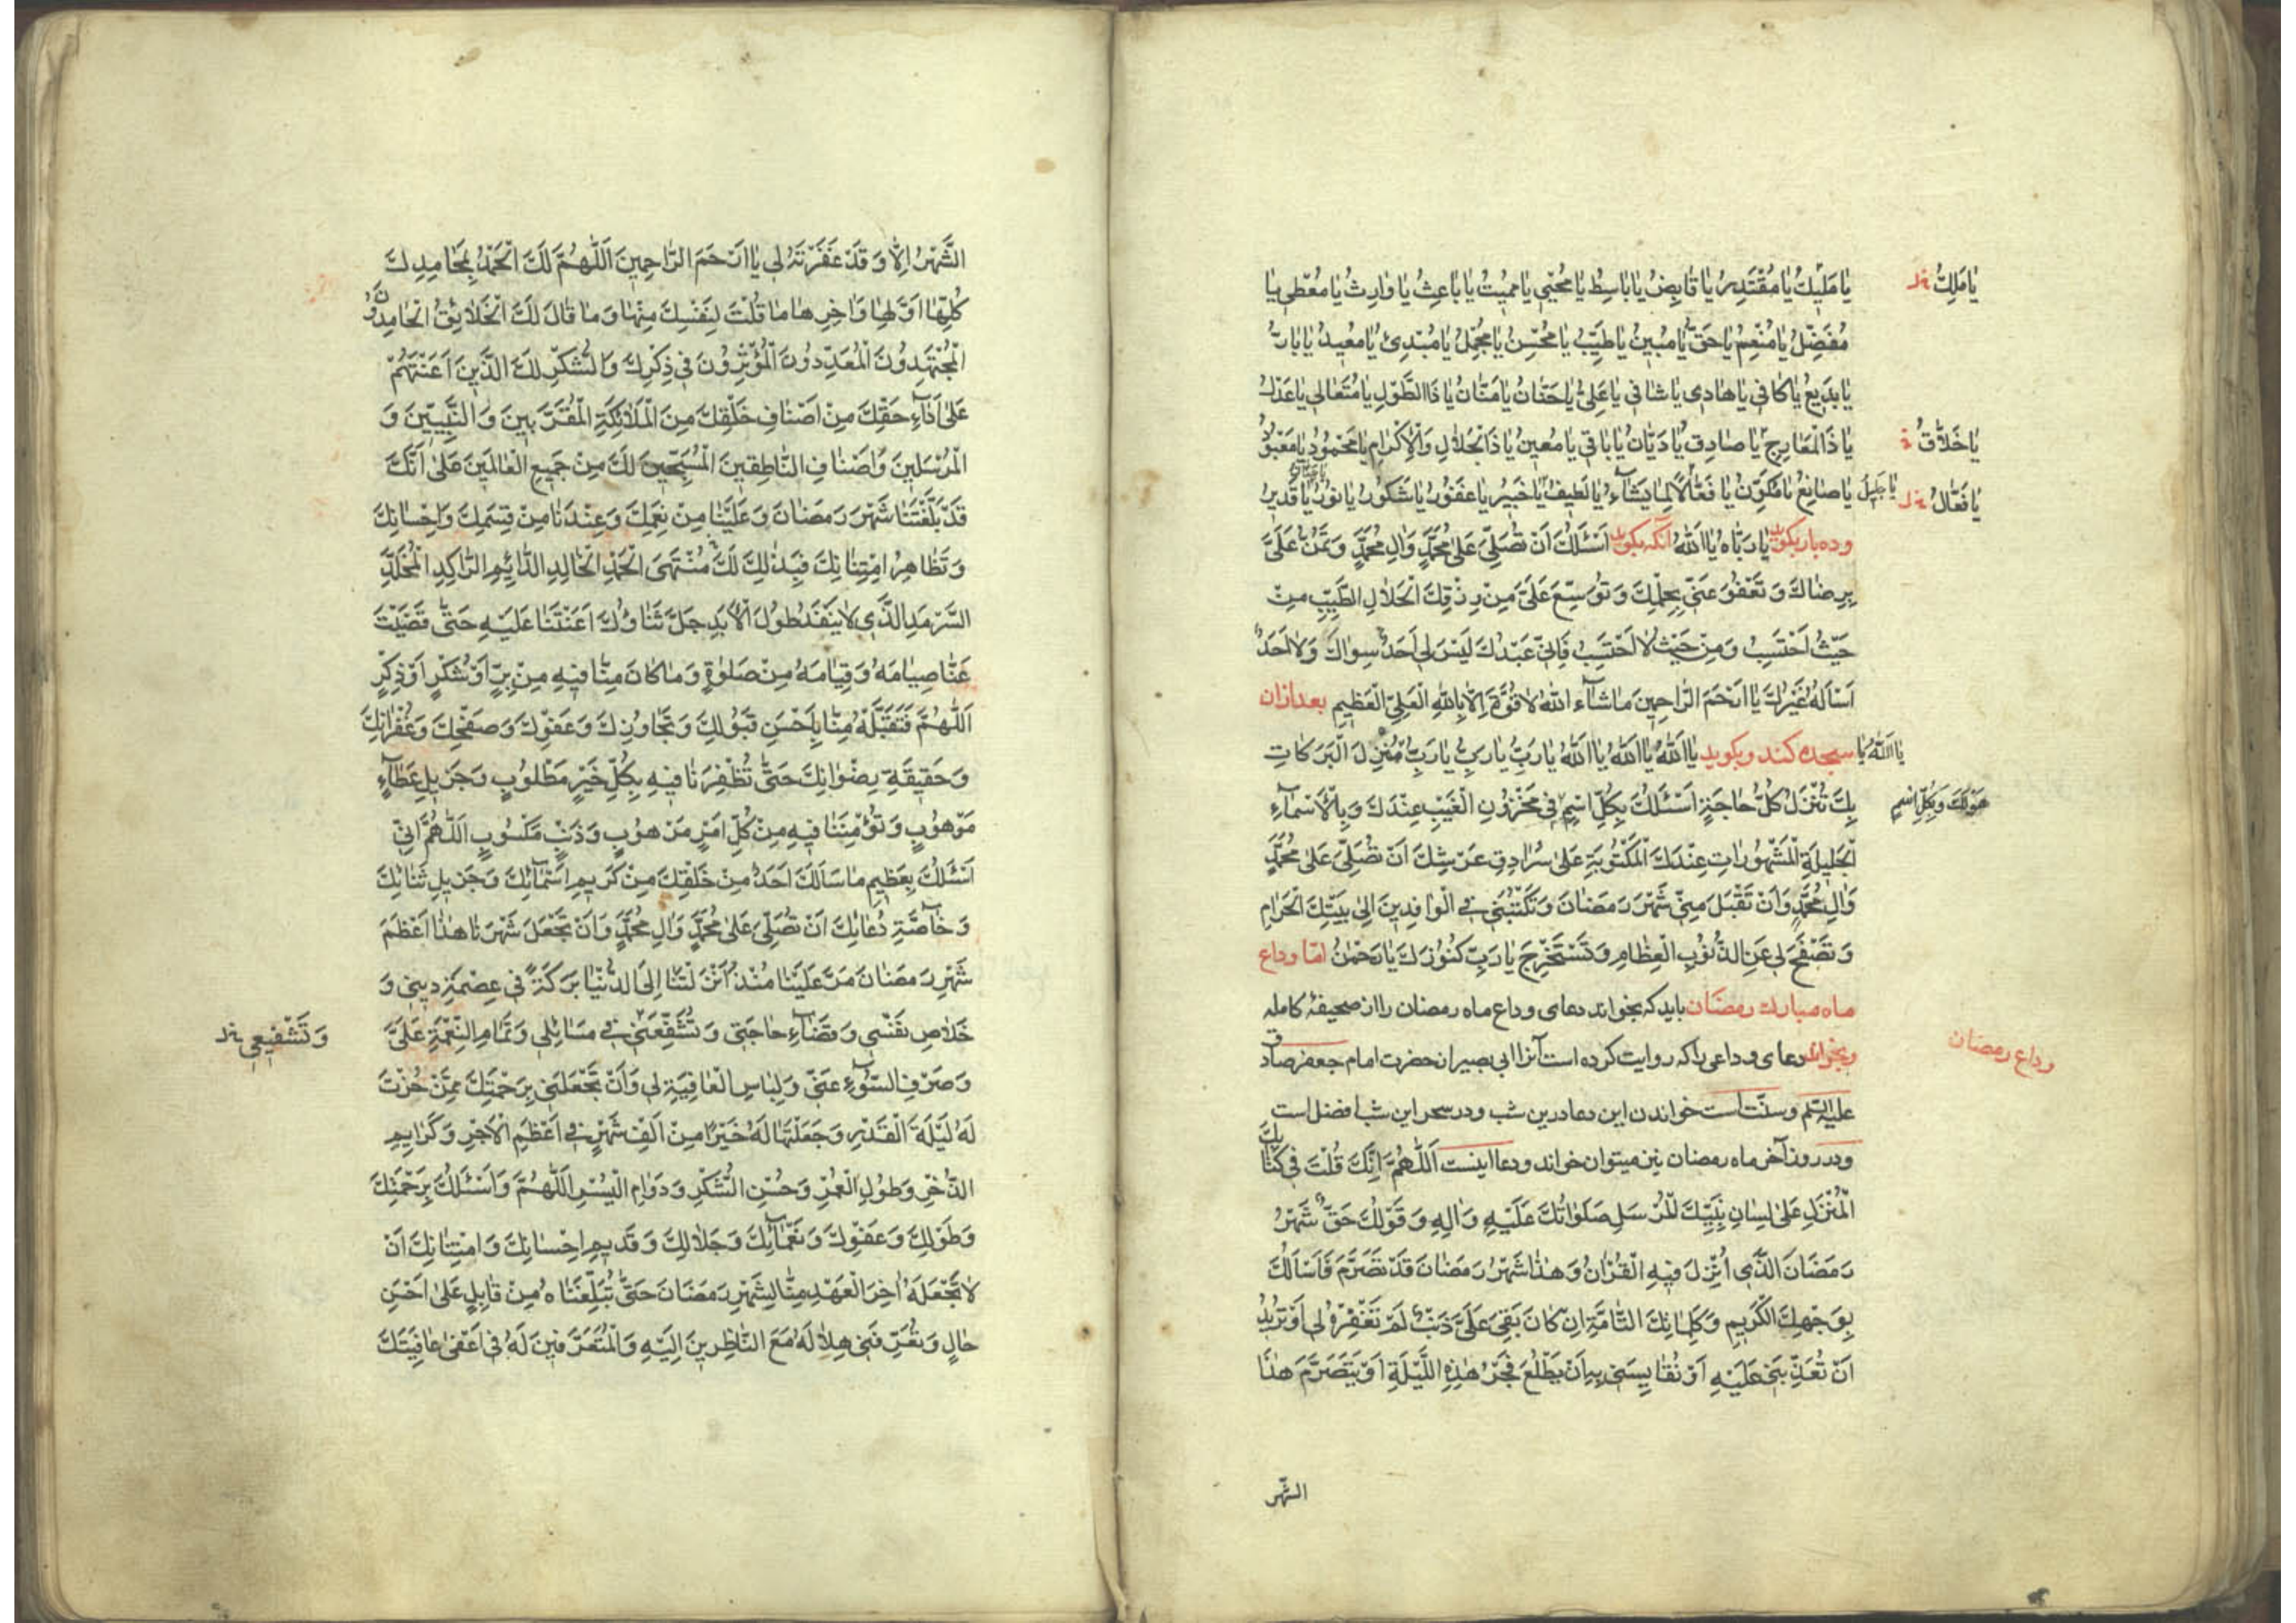 يٰا مَلِيكُ يٰا مُقْتَدِرُ يٰا قٰابِضُ يٰا بٰاسِطُ يٰا مُحْيِي يٰا مُمِيتُ يٰا بٰاعِثُ يٰا وٰارِثُ يٰا مُعْطِي يٰا
يٰا مَلِكُ
مُفَضِّلُ يٰا مُنْعِمُ يٰا حَقُّ يٰا مُبِينُ يٰا طَيِّبُ يٰا مُحْسِنُ يٰا مُجْمِلُ يٰا مُبْدِئُ يٰا مُعِيدُ يٰا بٰارُّ
يٰا بَدِيعُ يٰا كٰافِي يٰا هٰادِي يٰا شٰافِي يٰا عَلِيُّ يٰا حَنّٰانُ يٰا مَنّٰانُ يٰا ذَا الطَّوْلِ يٰا مُتَعٰالِي يٰا عَدْلُ
يٰا ذَا الْمَعٰارِجِ يٰا صٰادِقُ يٰا دَيّٰانُ يٰا بٰاقِي يٰا مُعِينُ يٰا ذَا الْجَلاٰلِ وَالْإِكْرٰامِ يٰا مَحْمُودُ يٰا مَعْبُودُ
يٰا خَلاّٰقُ
يٰا صٰانِعُ يٰا مُكَوِّنُ يٰا فَعّٰالاً لِمٰا يَشٰآءُ يٰا لَطِيفُ يٰا خَبِيرُ يٰا غَفُورُ يٰا شَكُورُ يٰا نُورُ يٰا قَدِيرُ
يٰا جَلِيلُ
يٰا فَعّٰالُ
وده بار بگويد يٰا رَبّٰاهُ يٰا اَللّٰهُ آنگه بگويد اَسْئَلُكَ اَنْ تُصَلِّيَ عَلىٰ مُحَمَّدٍ وَاٰلِ مُحَمَّدٍ وَتَمُنَّ عَلَيَّ
بِرِضٰاكَ وَتَعْفُوَ عَنِّي بِحِلْمِكَ وَتُوَسِّعَ عَلَيَّ مِنْ رِزْقِكَ الْحَلاٰلِ الطَّيِّبِ مِنْ
حَيْثُ اَحْتَسِبُ وَمِنْ حَيْثُ لاٰ اَحْتَسِبُ فَاِنِّي عَبْدُكَ لَيْسَ لِي اَحَدٌ سِوٰاكَ وَلاٰ اَحَدٌ
اَسْاَلُهُ غَيْرُكَ يٰا اَرْحَمَ الرّٰاحِمِينَ مٰا شٰآءَ اللّٰهُ لاٰ قُوَّةَ اِلاّٰ بِاللّٰهِ الْعَلِيِّ الْعَظِيمِ بعد از آن
سجده كند و بگويد يٰا اَللّٰهُ يٰا اَللّٰهُ يٰا اَللّٰهُ يٰا رَبِّ يٰا رَبِّ يٰا رَبِّ مُنْزِلَ الْبَرَكٰاتِ
يٰا اَللّٰهُ يٰا
بِكَ تُنْزَلُ كُلُّ حٰاجَةٍ اَسْئَلُكَ بِكُلِّ اسْمٍ فِي مَخْزُونِ الْغَيْبِ عِنْدَكَ وَبِالْاَسْمٰآءِ
هُوَ لَكَ وَبِكُلِّ اسْمٍ
الْجَلِيلَةِ الْمَشْهُورٰاتِ عِنْدَكَ الْمَكْتُوبَةِ عَلىٰ سُرٰادِقِ عَرْشِكَ اَنْ تُصَلِّيَ عَلىٰ مُحَمَّدٍ
وَاٰلِ مُحَمَّدٍ وَاَنْ تَقْبَلَ مِنِّي شَهْرَ رَمَضٰانَ وَتَكْتُبَنِي فِي الْوٰافِدِينَ اِلىٰ بَيْتِكَ الْحَرٰامِ
وَتَصْفَحَ لِي عَنِ الذُّنُوبِ الْعِظٰامِ وَتَسْتَخْرِجَ يٰا رَبِّ كُنُوزَكَ يٰا رَحْمٰنُ امّا وداع
ماه مبارك رمضان بايد كه بخواند دعاى وداع ماه رمضان را از صحيفهٔ كامله
وبخواند دعاى وداعى را كه روايت كرده است آنرا ابى بصير از حضرت امام جعفر صادق
وداع رمضان
عليه السّلم و سنّت است خواندن اين دعا درين شب و در سحر اين شب افضل است
ودر روز آخر ماه رمضان نيز ميتوان خواند ودعا اينست اَللّٰهُمَّ اِنَّكَ قُلْتَ فِي كِتٰابِكَ
الْمُنْزَلِ عَلىٰ لِسٰانِ نَبِيِّكَ الْمُرْسَلِ صَلَوٰاتُكَ عَلَيْهِ وَاٰلِهِ وَقَوْلُكَ حَقٌّ شَهْرُ
رَمَضٰانَ الَّذِي اُنْزِلَ فِيهِ الْقُرْاٰنُ وَهٰذٰا شَهْرُ رَمَضٰانَ قَدْ تَصَرَّمَ فَاَسْاَلُكَ
بِوَجْهِكَ الْكَرِيمِ وَكَلِمٰاتِكَ التّٰامَّةِ اِنْ كٰانَ بَقِيَ عَلَيَّ ذَنْبٌ لَمْ تَغْفِرْهُ لِي اَوْ تُرِيدُ
اَنْ تُعَذِّبَنِي عَلَيْهِ اَوْ تُقٰايِسَنِي بِهِ اَنْ يَطْلُعَ فَجْرُ هٰذِهِ اللَّيْلَةِ اَوْ يَتَصَرَّمَ هٰذَا
الشّهر
الشَّهْرُ اِلاّٰ وَقَدْ غَفَرْتَهُ لِي يٰا اَرْحَمَ الرّٰاحِمِينَ اَللّٰهُمَّ لَكَ الْحَمْدُ بِمَحٰامِدِكَ
كُلِّهٰا اَوَّلِهٰا وَاٰخِرِهٰا مٰا قُلْتَ لِنَفْسِكَ مِنْهٰا وَمٰا قٰالَ لَكَ الْخَلاٰئِقُ الْحٰامِدُونَ
الْمُجْتَهِدُونَ الْمُعَدِّدُونَ الْمُؤْثِرُونَ فِي ذِكْرِكَ وَالشُّكْرِ لَكَ الَّذِينَ اَعَنْتَهُمْ
عَلىٰ اَدٰآءِ حَقِّكَ مِنْ اَصْنٰافِ خَلْقِكَ مِنَ الْمَلاٰئِكَةِ الْمُقَرَّبِينَ وَالنَّبِيِّينَ وَ
الْمُرْسَلِينَ وَاَصْنٰافِ النّٰاطِقِينَ الْمُسَبِّحِينَ لَكَ مِنْ جَمِيعِ الْعٰالَمِينَ عَلىٰ اَنَّكَ
قَدْ بَلَّغْتَنٰا شَهْرَ رَمَضٰانَ وَعَلَيْنٰا مِنْ نِعَمِكَ وَعِنْدَنٰا مِنْ قِسَمِكَ وَاِحْسٰانِكَ
وَتَظٰاهِرُ امْتِنٰانِكَ فَبِذٰلِكَ لَكَ مُنْتَهَى الْحَمْدِ الْخٰالِدِ الدّٰائِمِ الرّٰاكِدِ الْمُخَلَّدِ
السَّرْمَدِ الَّذِي لاٰ يَنْفَدُ طُولَ الْاَبَدِ جَلَّ ثَنٰاؤُكَ اَعَنْتَنٰا عَلَيْهِ حَتّٰى قَضَيْتَ
عَنّٰا صِيٰامَهُ وَقِيٰامَهُ مِنْ صَلوٰةٍ وَمٰا كٰانَ مِنّٰا فِيهِ مِنْ بِرٍّ اَوْ شُكْرٍ اَوْ ذِكْرٍ
اَللّٰهُمَّ فَتَقَبَّلْهُ مِنّٰا بِاَحْسَنِ قَبُولِكَ وَتَجٰاوُزِكَ وَعَفْوِكَ وَصَفْحِكَ وَغُفْرٰانِكَ
وَحَقِيقَةِ رِضْوٰانِكَ حَتّٰى تُظْفِرَنٰا فِيهِ بِكُلِّ خَيْرٍ مَطْلُوبٍ وَجَزِيلِ عَطٰآءٍ
مَوْهُوبٍ وَتُؤْمِنَنٰا فِيهِ مِنْ كُلِّ اَمْرٍ مَرْهُوبٍ وَذَنْبٍ مَكْسُوبٍ اَللّٰهُمَّ اِنِّي
اَسْئَلُكَ بِعَظِيمِ مٰا سَاَلَكَ اَحَدٌ مِنْ خَلْقِكَ مِنْ كَرِيمِ اَسْمٰآئِكَ وَجَزِيلِ ثَنٰائِكَ
وَخٰآصَّةِ دُعٰائِكَ اَنْ تُصَلِّيَ عَلىٰ مُحَمَّدٍ وَاٰلِ مُحَمَّدٍ وَاَنْ تَجْعَلَ شَهْرَنٰا هٰذٰا اَعْظَمَ
شَهْرِ رَمَضٰانَ مَرَّ عَلَيْنٰا مُنْذُ اَنْزَلْتَنٰا اِلَى الدُّنْيٰا بَرَكَةً فِي عِصْمَةِ دِينِي وَ
خَلاٰصِ نَفْسِي وَقَضٰآءِ حٰاجَتِي وَتُشَفِّعَنِي فِي مَسٰائِلِي وَتَمٰامِ النِّعْمَةِ عَلَيَّ
وَتَشْفِيعِي
وَصَرْفِ السُّوٓءِ عَنِّي وَلِبٰاسِ الْعٰافِيَةِ لِي وَاَنْ تَجْعَلَنِي بِرَحْمَتِكَ مِمَّنْ حُزْتَ
لَهُ لَيْلَةَ الْقَدْرِ وَجَعَلْتَهٰا لَهُ خَيْرًا مِنْ اَلْفِ شَهْرٍ فِي اَعْظَمِ الْاَجْرِ وَكَرٰايِمِ
الذُّخْرِ وَطُولِ الْعُمْرِ وَحُسْنِ الشُّكْرِ وَدَوٰامِ الْيُسْرِ اَللّٰهُمَّ وَاَسْئَلُكَ بِرَحْمَتِكَ
وَطَوْلِكَ وَعَفْوِكَ وَنَعْمٰآئِكَ وَجَلاٰلِكَ وَقَدِيمِ اِحْسٰانِكَ وَامْتِنٰانِكَ اَنْ
لاٰ تَجْعَلَهُ اٰخِرَ الْعَهْدِ مِنّٰا لِشَهْرِ رَمَضٰانَ حَتّٰى تُبَلِّغَنٰاهُ مِنْ قٰابِلٍ عَلىٰ اَحْسَنِ
حٰالٍ وَتُعَرِّفَنِي هِلاٰلَهُ مَعَ النّٰاظِرِينَ اِلَيْهِ وَالْمُتَعَرِّفِينَ لَهُ فِي اَعْفىٰ عٰافِيَتِكَ